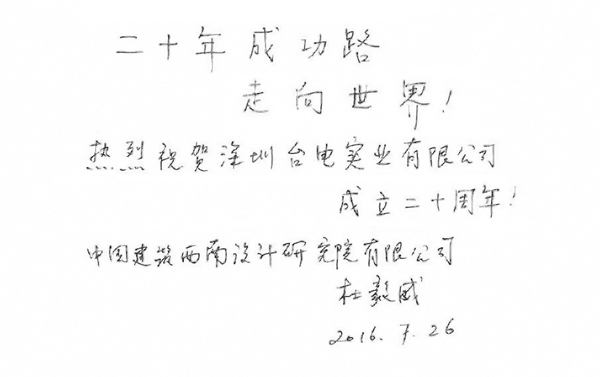 二十年成功路
走向世界!
热烈祝贺深圳台电实业有限公司
成立二十周年!
中国建筑西南设计研究院有限公司
杜毅威
2016.7.26